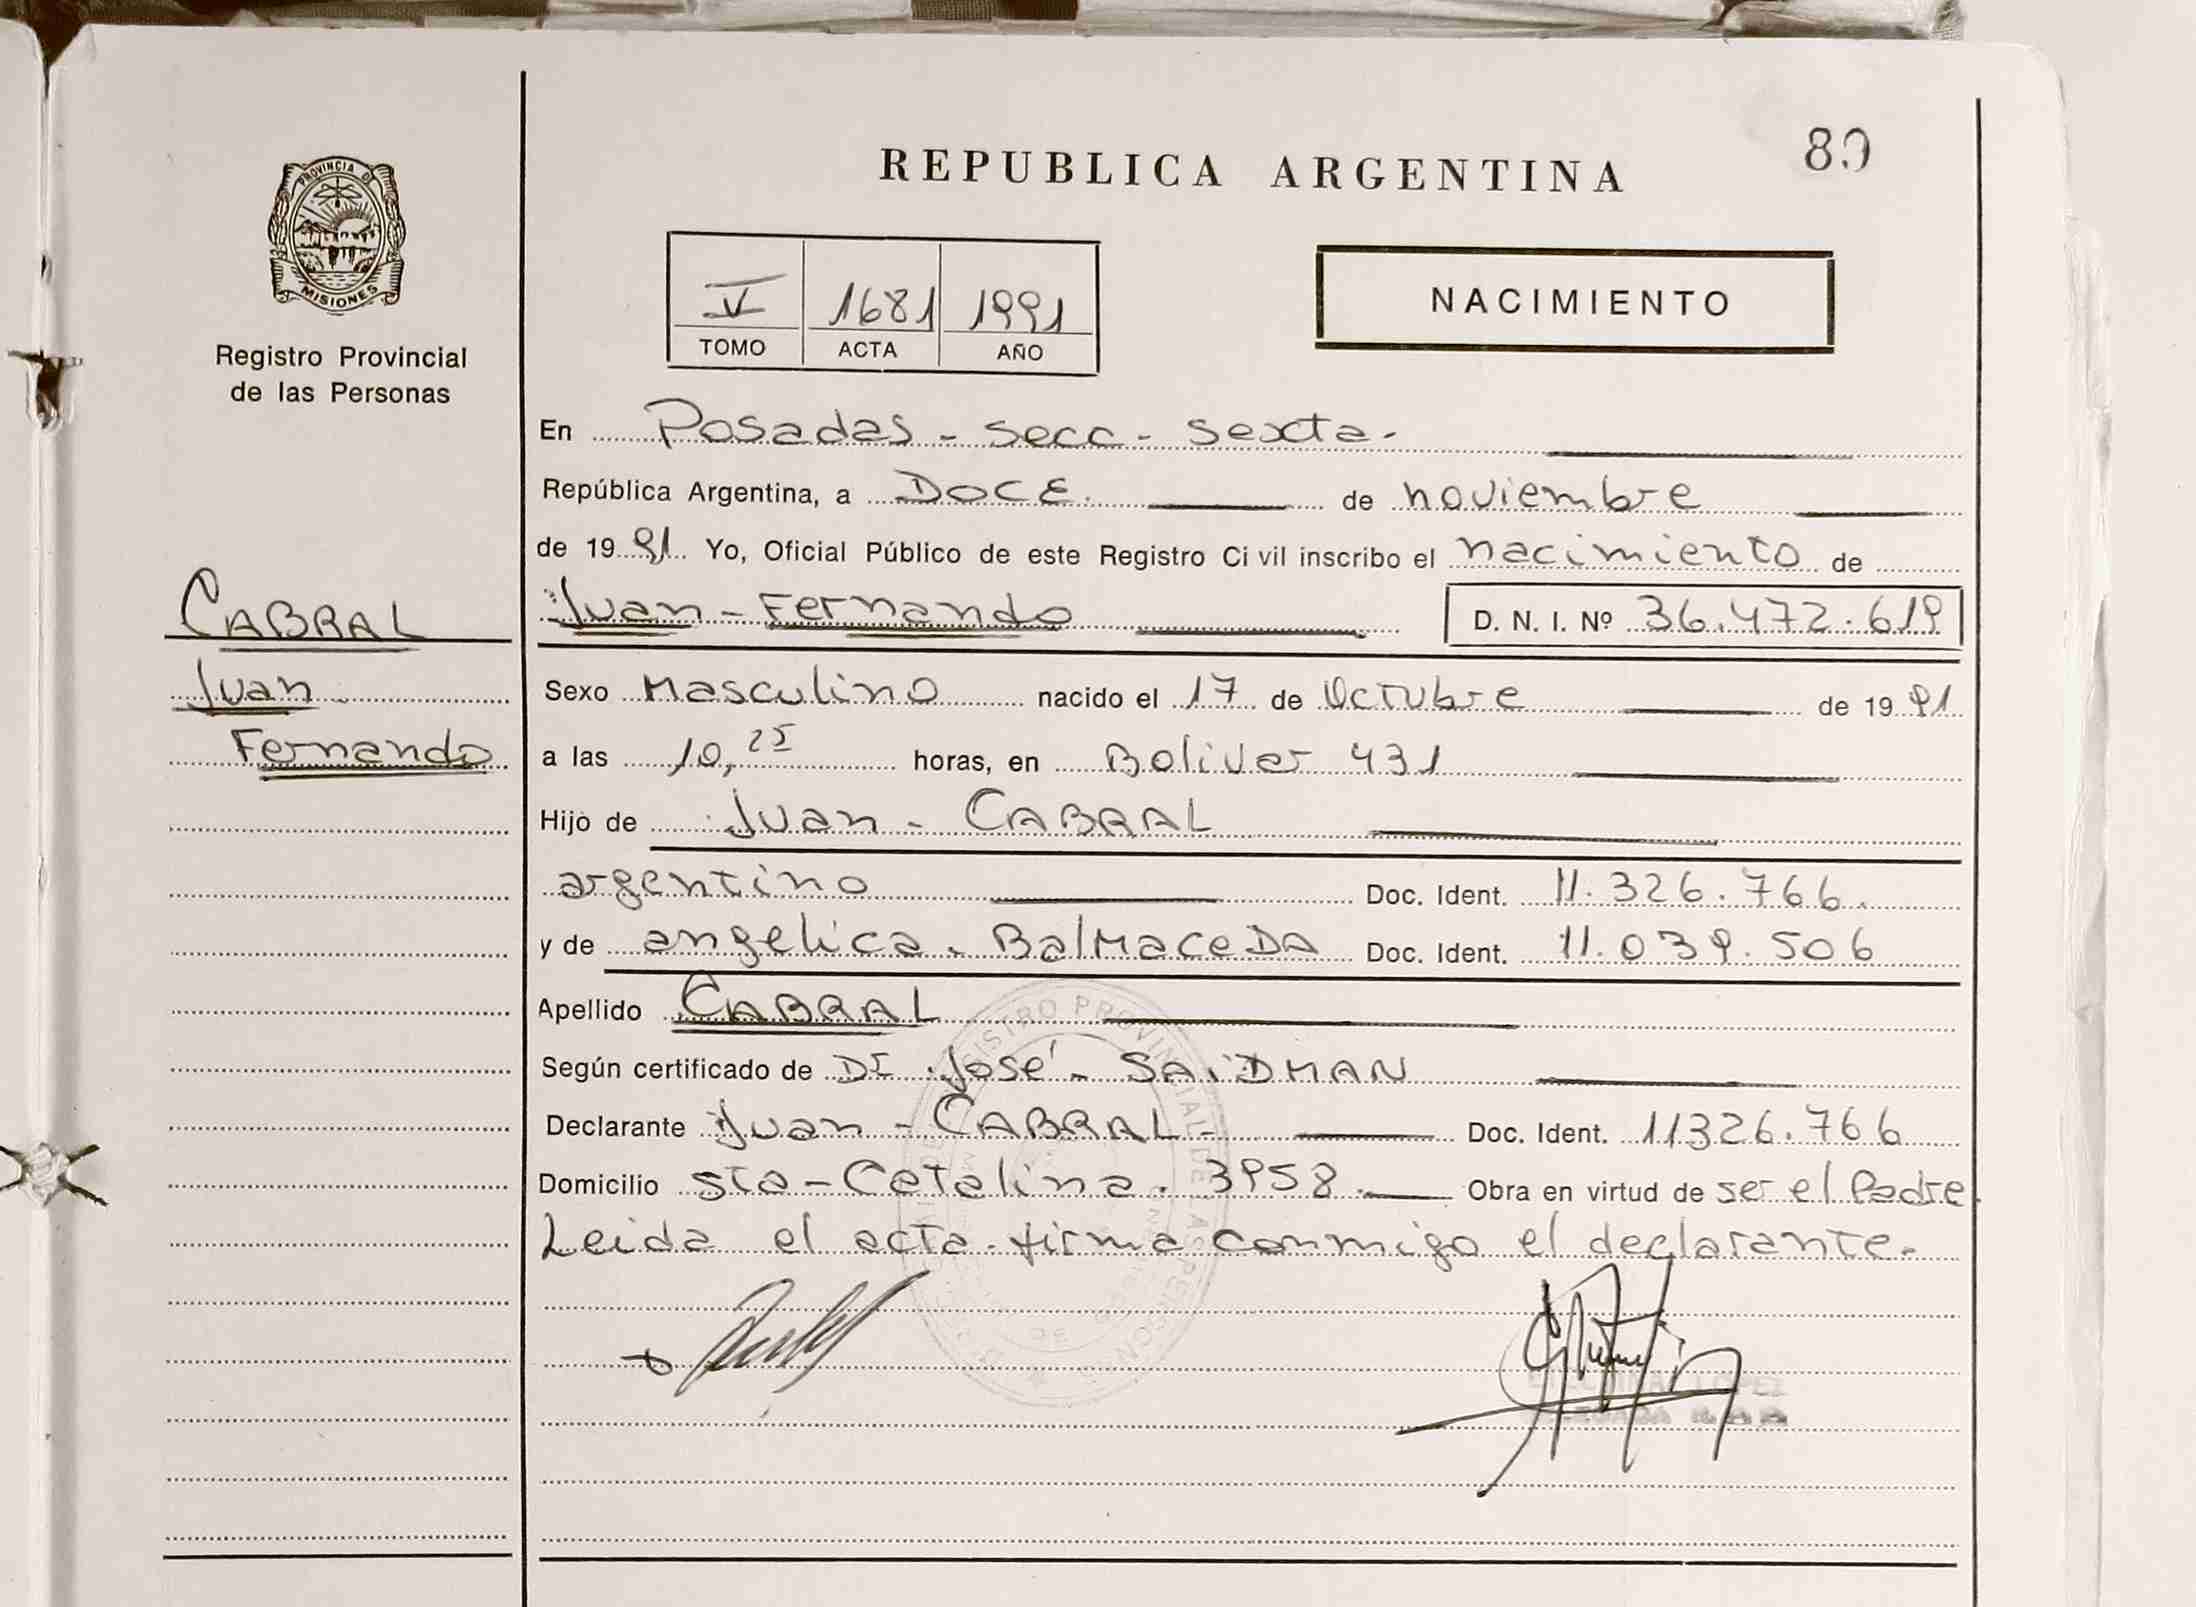 80
REPUBLICA ARGENTINA
PROVINCIA DE
MISIONES
Registro Provincial
de las Personas
V 1681 1991
TOMO ACTA AÑO
NACIMIENTO
En Posadas - secc - sexta -
República Argentina, a DOCE. de noviembre
de 19 91 Yo, Oficial Público de este Registro Civil inscribo el nacimiento de
CABRAL
Juan
Fernando
Juan - Fernando D. N. I. Nº 36.472.619
Sexo Masculino nacido el 17 de Octubre de 19 91
a las 10,25 horas, en Bolivar 431
Hijo de Juan - CABRAL
argentino Doc. Ident. 11.326.766.
y de angelica - BalMaceDA Doc. Ident. 11.039.506
Apellido CABRAL
Según certificado de Dr José - SAiDMAN
Declarante Juan - CABRAL - Doc. Ident. 11326.766
Domicilio sta - Catalina. 3958. Obra en virtud de ser el Padre
Leida el acta - firma conmigo el declarante -
REGISTRO PROVINCIAL DE LAS PERSONAS